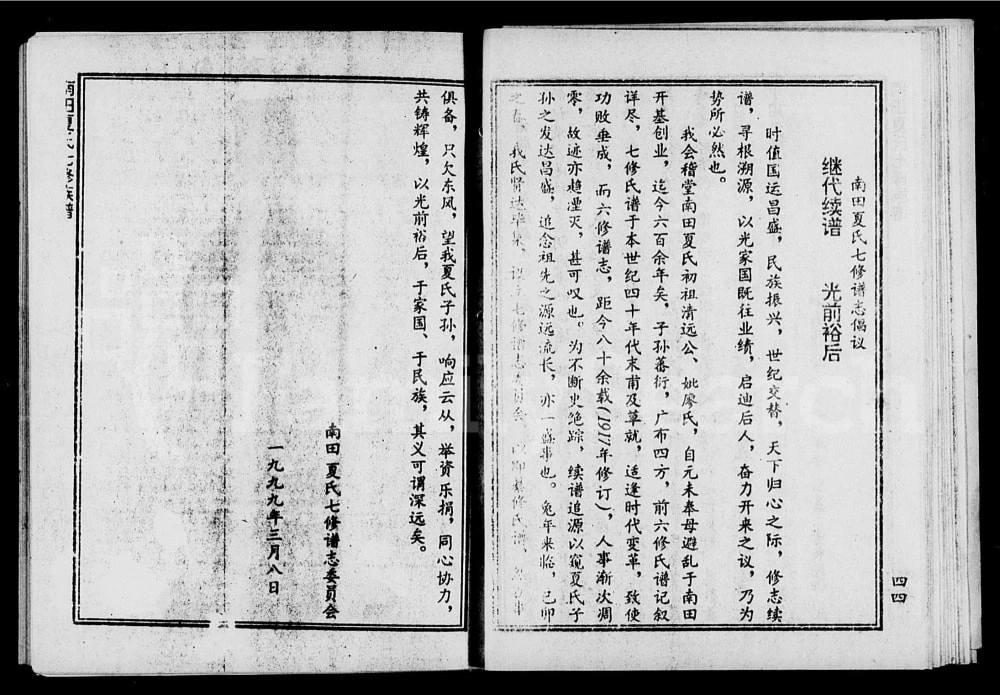 南田夏氏七修谱志倡议
继代续谱 光前裕后
时值国运昌盛，民族振兴，世纪交替，天下归心之际，修志续
谱，寻根溯源，以光家国既往业绩，启迪后人，奋力开来之议，乃为
势所必然也。
我会稽堂南田夏氏初祖清远公、妣廖氏，自元末奉母避乱于南田
开基创业，迄今六百余年矣，子孙蕃衍，广布四方，前六修氏谱记叙
详尽，七修氏谱于本世纪四十年代末甫及草就，适逢时代变革，致使
功败垂成，而六修谱志，距今八十余载(1917年修订)，人事渐次凋
零，故迹亦趋湮灭，甚可叹也。为不断史绝踪，续谱追源以窥夏氏子
孙之发达昌盛，追念祖先之源远流长，亦一盛事也。兔年来临，己卯
之春，我氏贤达毕集，议
四四
俱备，只欠东风，望我夏氏子孙，响应云从，举资乐捐，同心协力，
共铸辉煌，以光前裕后，于家国、于民族，其义可谓深远矣。
南田夏氏七修谱志委员会
一九九九年三月八日
南田夏氏七修族谱